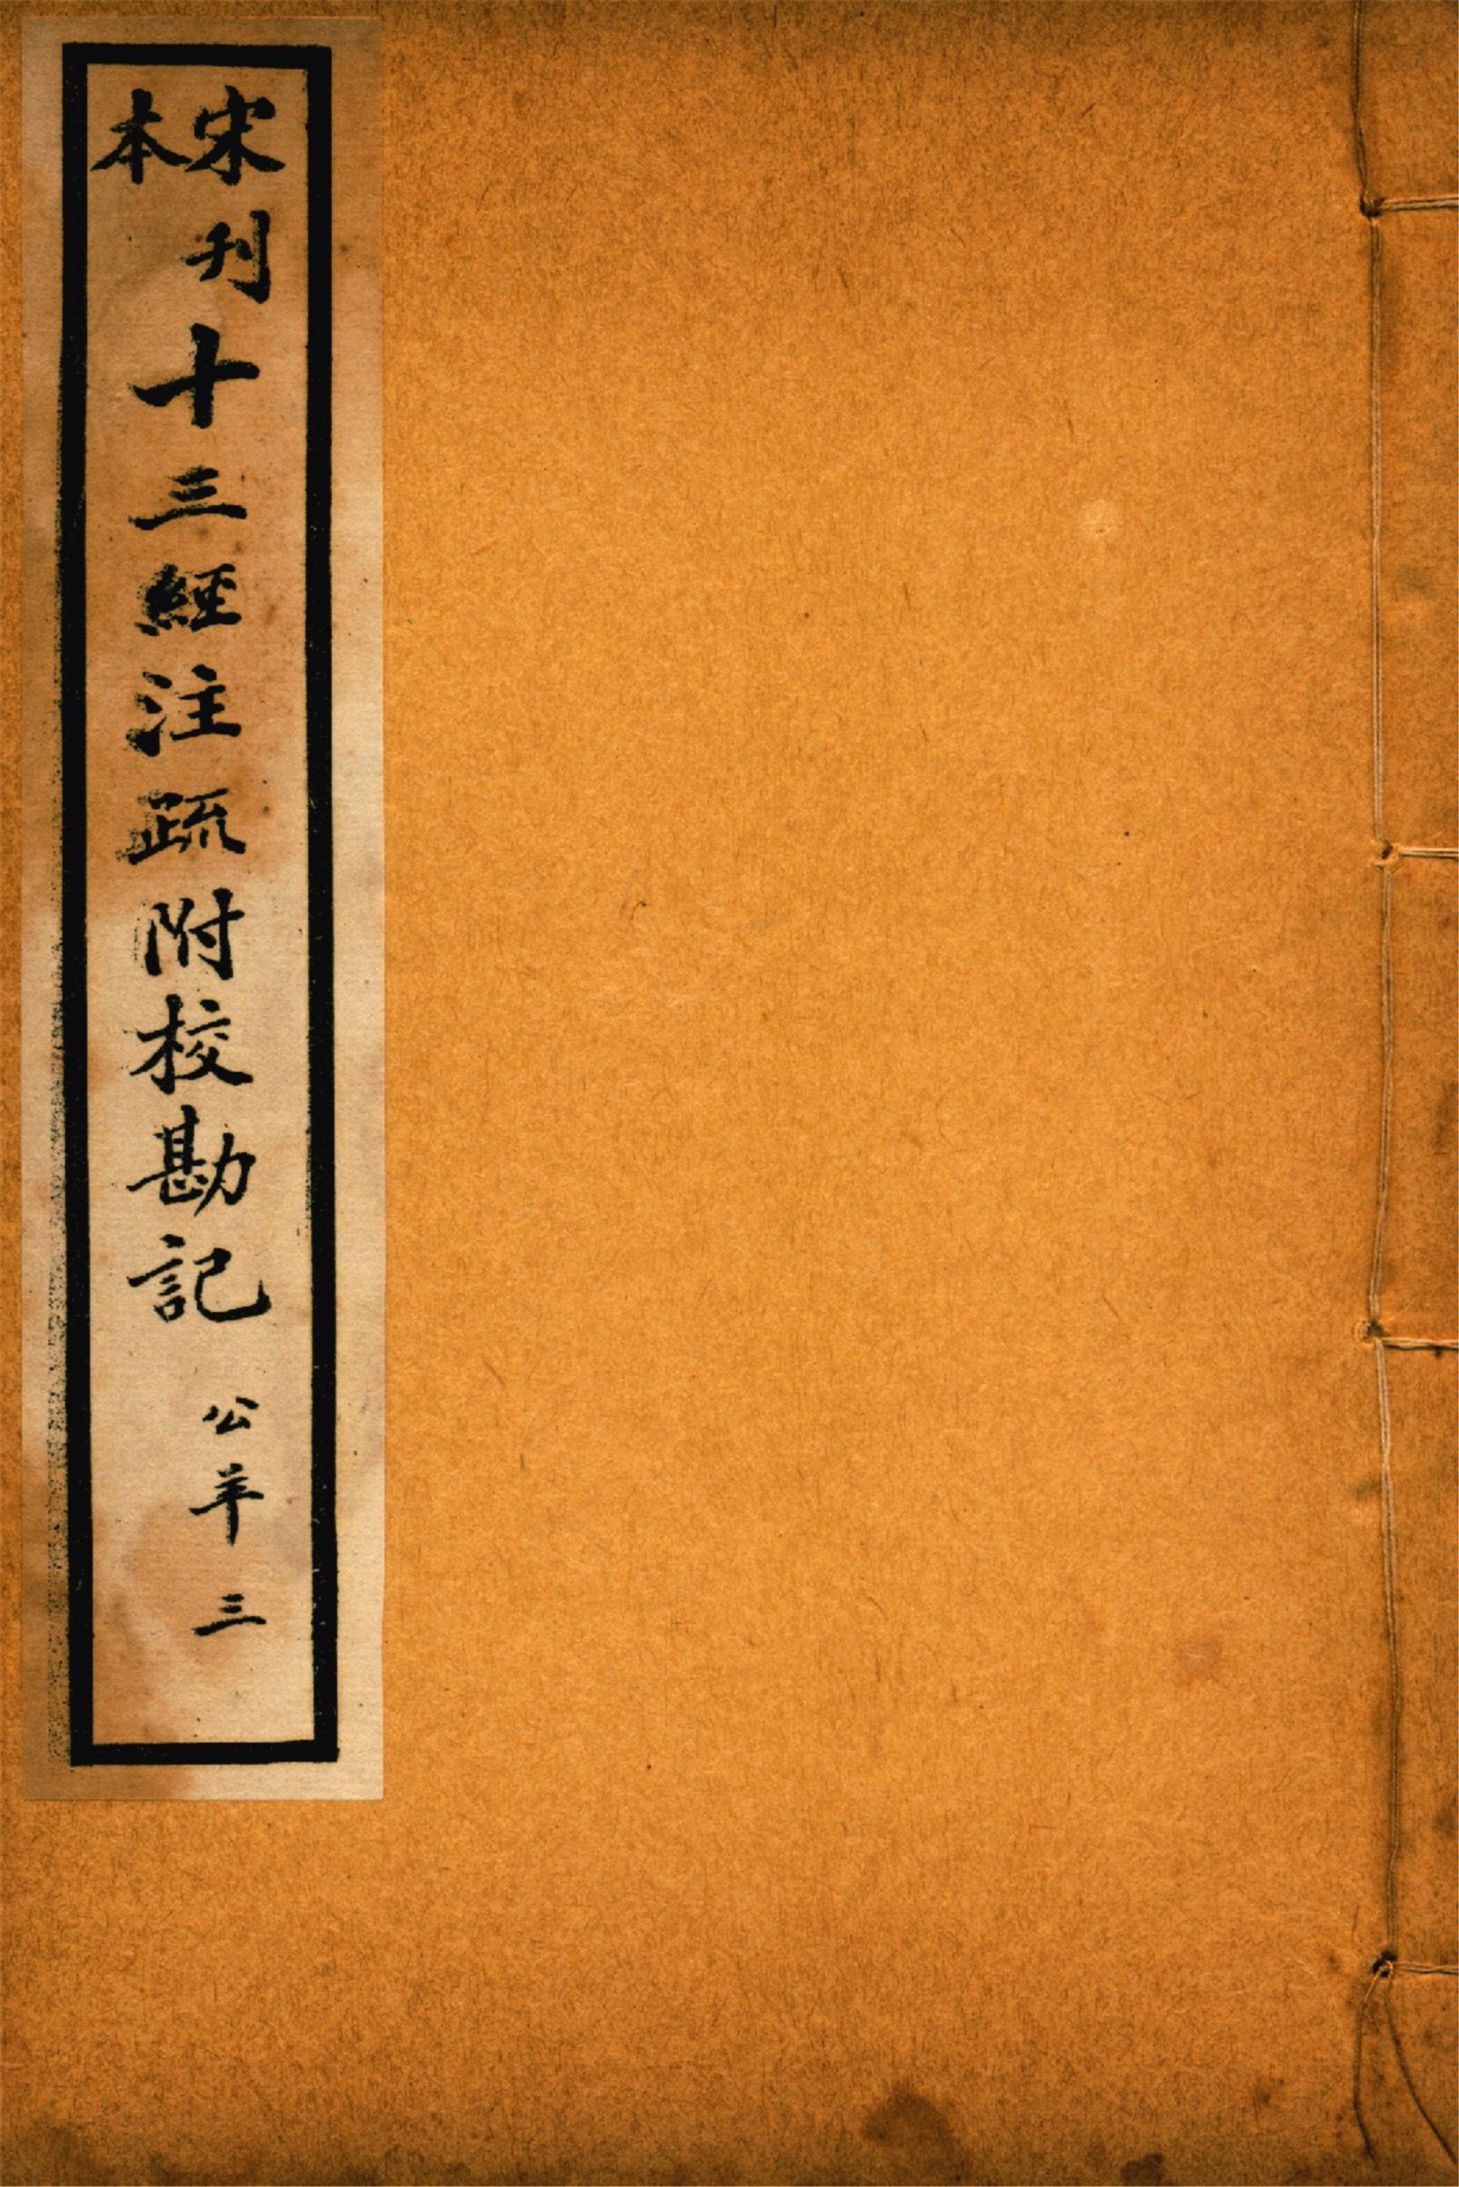 宋刋本十三經注疏附校勘記
公羊三